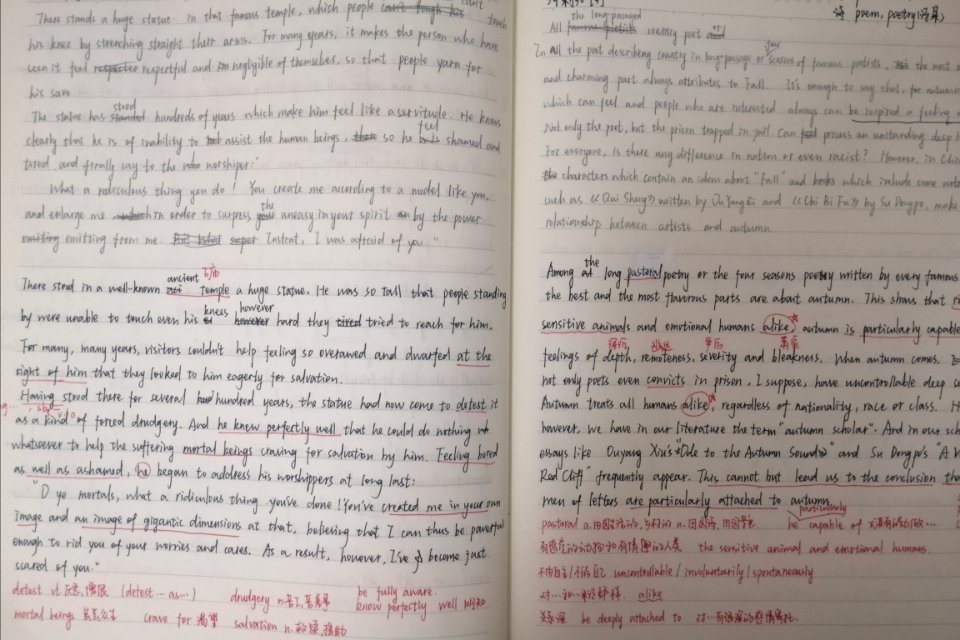 There stands a huge statue in that famous temple, which people can't touch
his knee by strenching straight their arms. For many years, it makes the person who have
seen it feel respectful and negligible of themselves, so that people yarn for
his save.
The statue has stood hundreds of years which make him feel like a servitude. He knows
clearly that he is of inability to assist the human beings, so he feel shamed and
tired and finally say to the worshiper:"
What a ridiculous thing you do! You create me according to a model like you,
and enlarge me in order to surpress the uneasy in your spirit by the power
emitting from me. Insteat, I was afraid of you"
There stood in a well-known ancient temple a huge statue. He was so tall that people standing
by were unable to touch even his knees however hard they tried to reach for him.
For many, many years, visitors couldn't help feeling so overawed and dwarfed at the
sight of him that they looked to him eagerly for salvation.
Having stood there for several hundred years, the statue had now come to detest it
as a kind of forced drudgery. And he knew perfectly well that he could do nothing
whatsoever to help the suffering mortal beings craving for salvation by him. Feeling bored
as well as ashamed, he began to address his worshippers at long last:
"O ye mortals, what a ridiculous thing you've done! You've created me in your own
Image and an image of gigantic dimensions at that, believing that I can thus be powerful
enough to rid you of your worries and cares. As a result, however, I've become just
scared of you."
detest vt 厌恶,憎恨 (detest … as…) drudgery n. be fully aware.
know perfectly well 明知
mortal beings 芸芸众生 crave for 渴望 salvation n.
诗 poem, poetry
All the long-passaged country poet
In all the poet describing country in long-passage or seasons of famous poetists, the most
and charming part always attributes to Fall. It's enough to say that, for autumn
which can feel and people who are interested always can be inspired a feeling
Not only the poet, but the prison trapped in jail. Can process an unstanding deep
For everyone, is there any difference in nation or even racist? However, in Chin
characters which contain an idiom about "Fall" and books which include some note
such as 《Qiu Sheng》 written by Ou Yang Zi and 《Chi Bi Fu》 by Su Dongpo, make
relationship between artists and autumn.
Among the long pastoral poetry or the four seasons poetry written by every famous
the best and the most flavorous parts are about autumn. This shows that
sensitive animals and emotional humans alike, autumn is particularly capable
feelings of depth, remoteness, severity and bleakness. When autumn comes,
not only poets even convicts in prison, I suppose, have uncontrollable deep
Autumn treats all humans alike, regardless of nationality, race or class. H
however, we have in our literature the term "autumn scholar". And in our sch
essays like Ouyang Xiu's "Ode to the Autumn Sounds" and Su Dongpo's "A
Red Cliff" frequently appear. This cannot but lead us to the conclusion tha
men of letters are particularly attached to autumn.
particularly
pastoral a. be capable of
the sensitive animal and emotional humans.
uncontrollable / involuntarily / spontaneously
alike
be deeply attached to